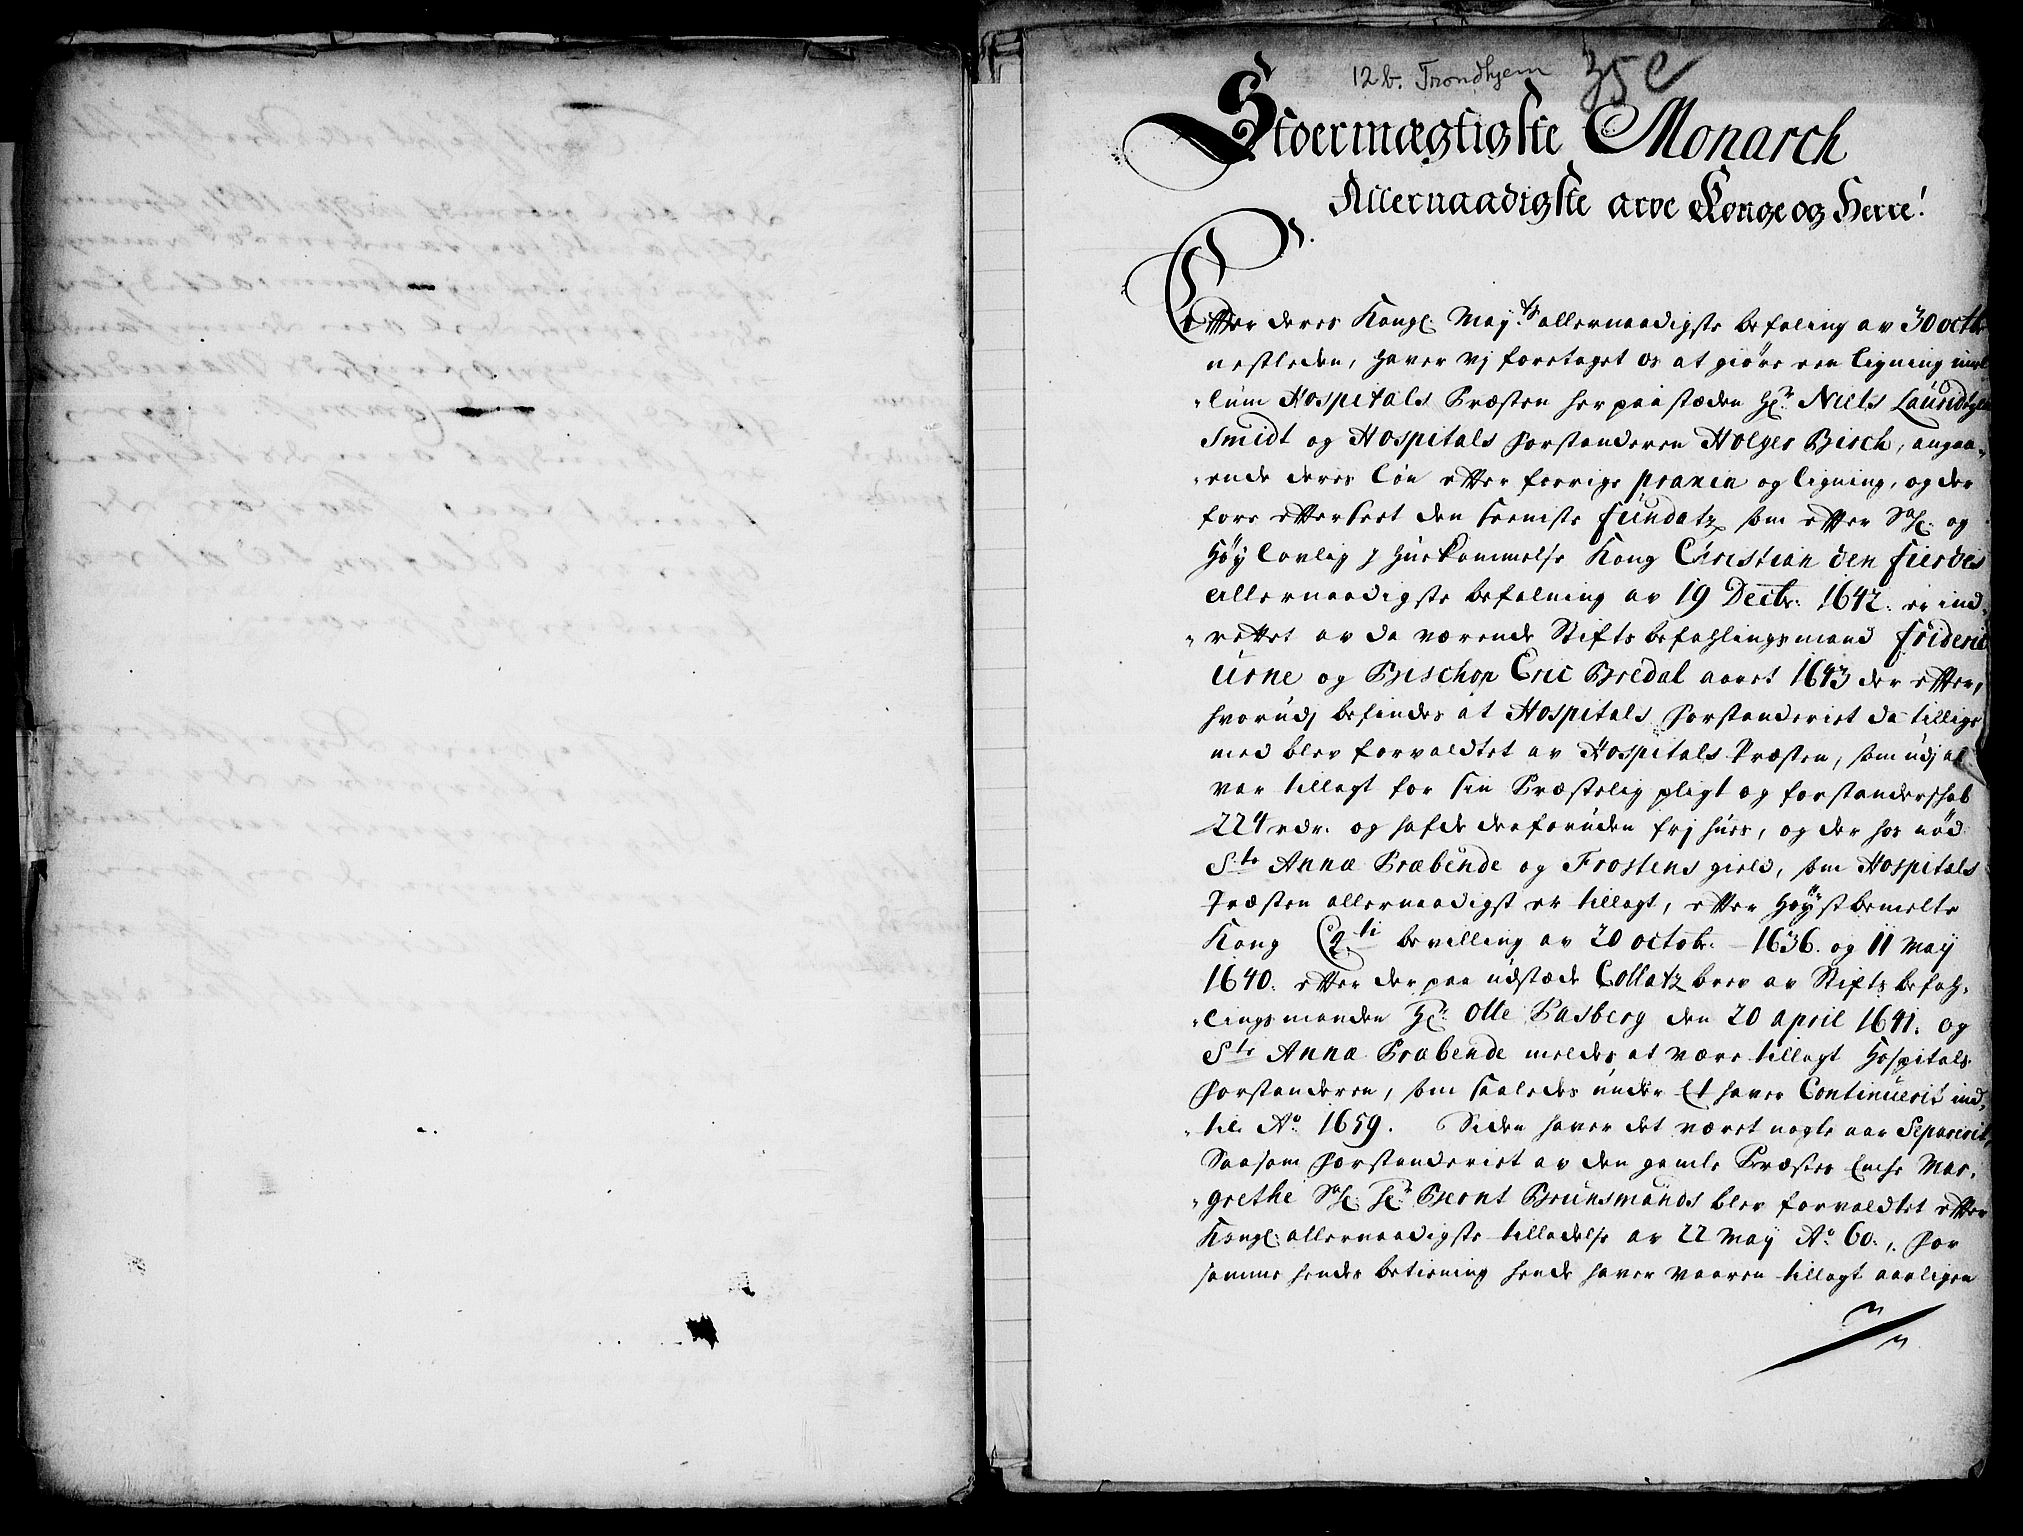 12 b. Trondhjem 35 e
Stoermægtigste Monarch
Allernaadigste arve Konge og Herre!
Efter deres Kongl: May:ts allernaadigste befaling av 30 octbr
nestleden, haver vj foretaget os at giöre een ligning imel
-lum Hospitals Præsten her paa stæden Hr: Niels Lauridtzen
Smidt og Hospitals forstanderen Holger Birch, angaa-
-ende deres Løn efter forrige praxin og ligning, og der
fore efterseet den seeniste fundatz som efter Sal: og
Höylovlig Ihuekommelse Kong Christian den fierdes
allernaadigste befalning av 19 Decbr: 1642. er ind-
-rettet av da værende Stiftsbefahlingsmand Frideric
Urne og Bischop Eric Bredal aaret 1643 der efter,
hvorudj befindes at Hospitals forstanderiet da tillige
med blev forvaldtet av Hospitals Præsten, som udj alt
var tillagt for sin Præstelig pligt og forstanderskab
224 rdr. og hafde desforuden frj huus, og der hos nød
Ste Annæ Præbende og Frostens gield, som Hospitals
Præsten allernaadigst er tillagt, efter Höystbemelte
Kong C 4ti bevilling av 20 octobr. 1636. og 11 May
1640. efter der paa udstæde Collatz brev av Stiftsbefah-
-lingsmanden Hr: Olle Pasberg den 20 april 1641. og
Ste Annæ Præbende meldes at være tillagt Hospitals
forstanderen, som saaledes under Et haver Continuerit ind-
-til Ao 1659. Siden haver det været nogle aar Separerit,
Saasom forstanderiet av den gamle Præstes Encke Mar-
-grethe Sal: Hr: Bernt Brunsmands blev forvaldtet efter
Kongl: allernaadigste tilladelse av 22 May Ao 60., for
samme hendes betiening hende haver vaaren tillagt aarligen